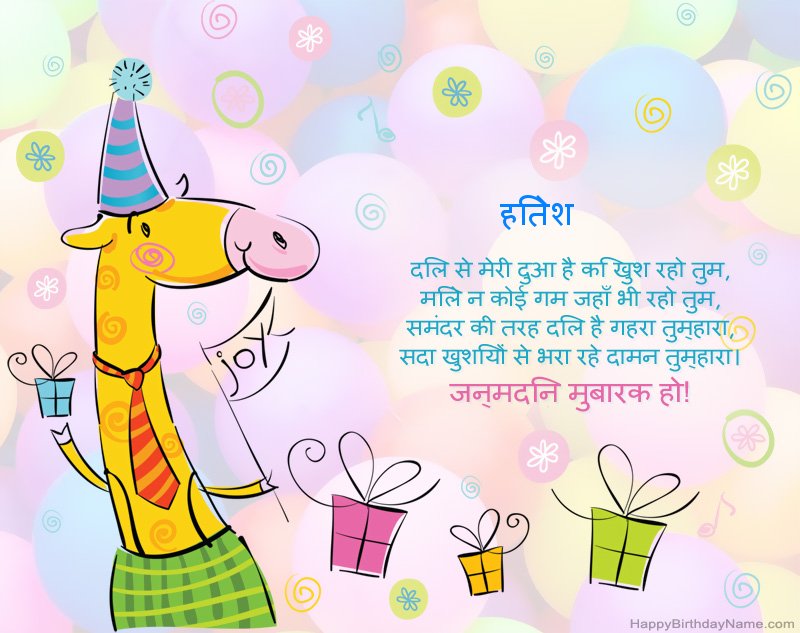 हितेश
दिल से मेरी दुआ है कि खुश रहो तुम,
मिले न कोई गम जहाँ भी रहो तुम,
समंदर की तरह दिल है गहरा तुम्हारा,
सदा खुशियों से भरा रहे दामन तुम्हारा।
जन्मदिन मुबारक हो!
joy
HappyBirthdayName.com